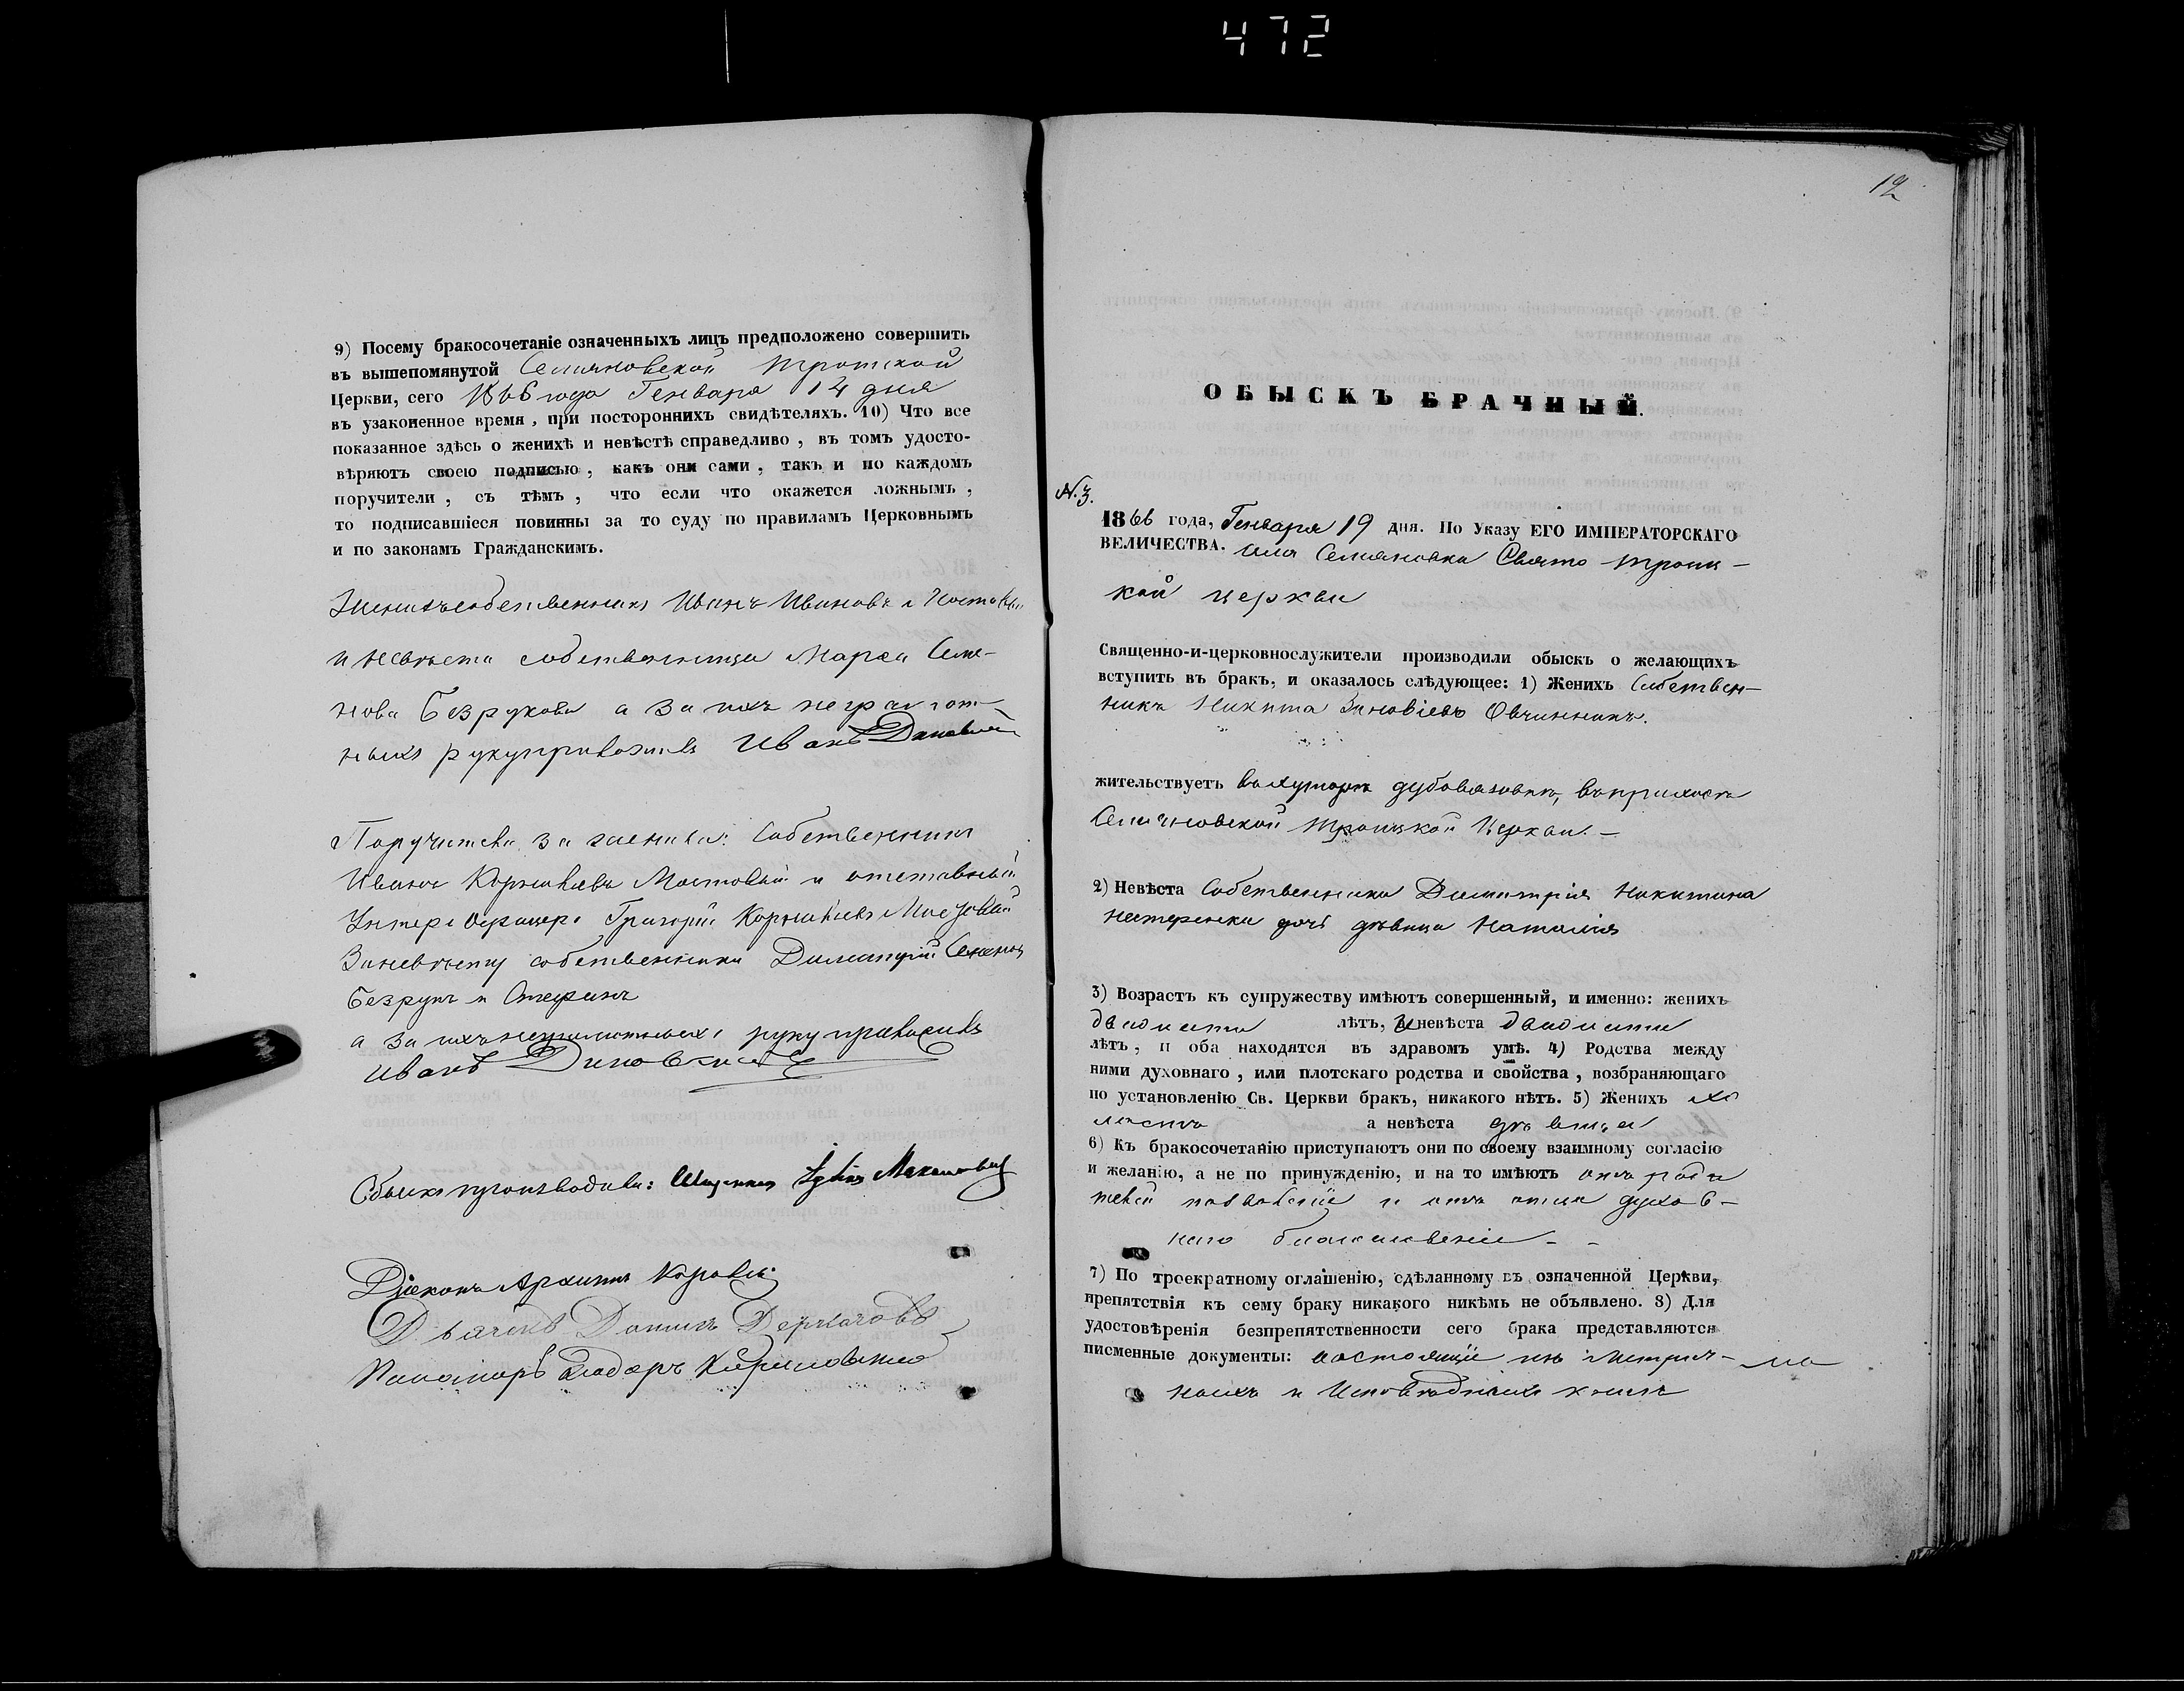 472
9) Посему бракосочетаніе означенныхъ лицъ предположено совершить
въ вышепомянутой Семяновской Троицкой
Церкви, сего 1866 года Генваря 14 дня
въ узаконенное время, при постороннихъ свидѣтеляхъ. 10) Что все
показанное здѣсь о женихѣ и невѣстѣ справедливо, въ томъ удосто-
вѣряютъ своею подписью, какъ они сами, такъ и по каждомъ
поручители, съ тѣмъ, что если что окажется ложнымъ,
то подписавшіеся повинны за то суду по правиламъ Церковнымъ
и по законамъ Гражданскимъ.
Женихъ собственникъ Иванъ Ивановъ
и невѣста собственница Марѳа Семе-
нова Безрукова а за ихъ неграмот-
ныхъ рукуприложилъ Иванъ
Поручители за жениха: Собственники
Иванъ Корніевъ Мостовый и отставный
Унтеръ офицеръ Григорій Корніевъ
Заневѣсту собственники Димитрій
Безрукъ и Стефанъ
а за ихъ неграмотныхъ руку приложилъ
Иванъ
Обыскъ производили: Священникъ
Діаконъ Архипъ
Дьячекъ Даніилъ Деркачовъ
Пономарь
12
ОБЫСКЪ БРАЧНЫЙ.
N. 3.
1866 года, Генваря 19 дня. По Указу ЕГО ИМПЕРАТОРСКАГО
ВЕЛИЧЕСТВА. села Семяновки Свято Троиц-
кой церкви
Священно-и-церковнослужители производили обыскъ о желающихъ
вступить въ бракъ, и оказалось слѣдующее: 1) Женихъ Собствен-
никъ Никита Зиновіевъ Овчинникъ.
жительствуетъ въ хуторѣ дубовязовкѣ, въ приходѣ
Семяновской Троицкой Церкви. -
2) Невѣста Собственника Димитрія Никитина
Нестеренка дочь дѣвица Наталія
3) Возрастъ къ супружеству имѣютъ совершенный, и именно: женихъ
двадцати лѣтъ, и невѣста двадцати
лѣтъ, и оба находятся въ здравомъ умѣ. 4) Родства между
ними духовнаго, или плотскаго родства и свойства, возбраняющаго
по установленію Св. Церкви бракъ, никакого нѣтъ. 5) Женихъ хо
лостъ а невѣста дѣвица
6) Къ бракосочетанію приступаютъ они по своему взаимному согласію
и желанію, а не по принужденію, и на то имѣютъ отъ роди
телей позволеніе и отъ отца духов-
наго благословеніе - -
7) По троекратному оглашенію, сдѣланному въ означенной Церкви,
препятствія къ сему браку никакого никѣмъ не объявлено. 8) Для
удостовѣренія безпрепятственности сего брака представляются
писменные документы: состоящіе изъ Метрич-
ныхъ и Исповѣдныхъ книгъ